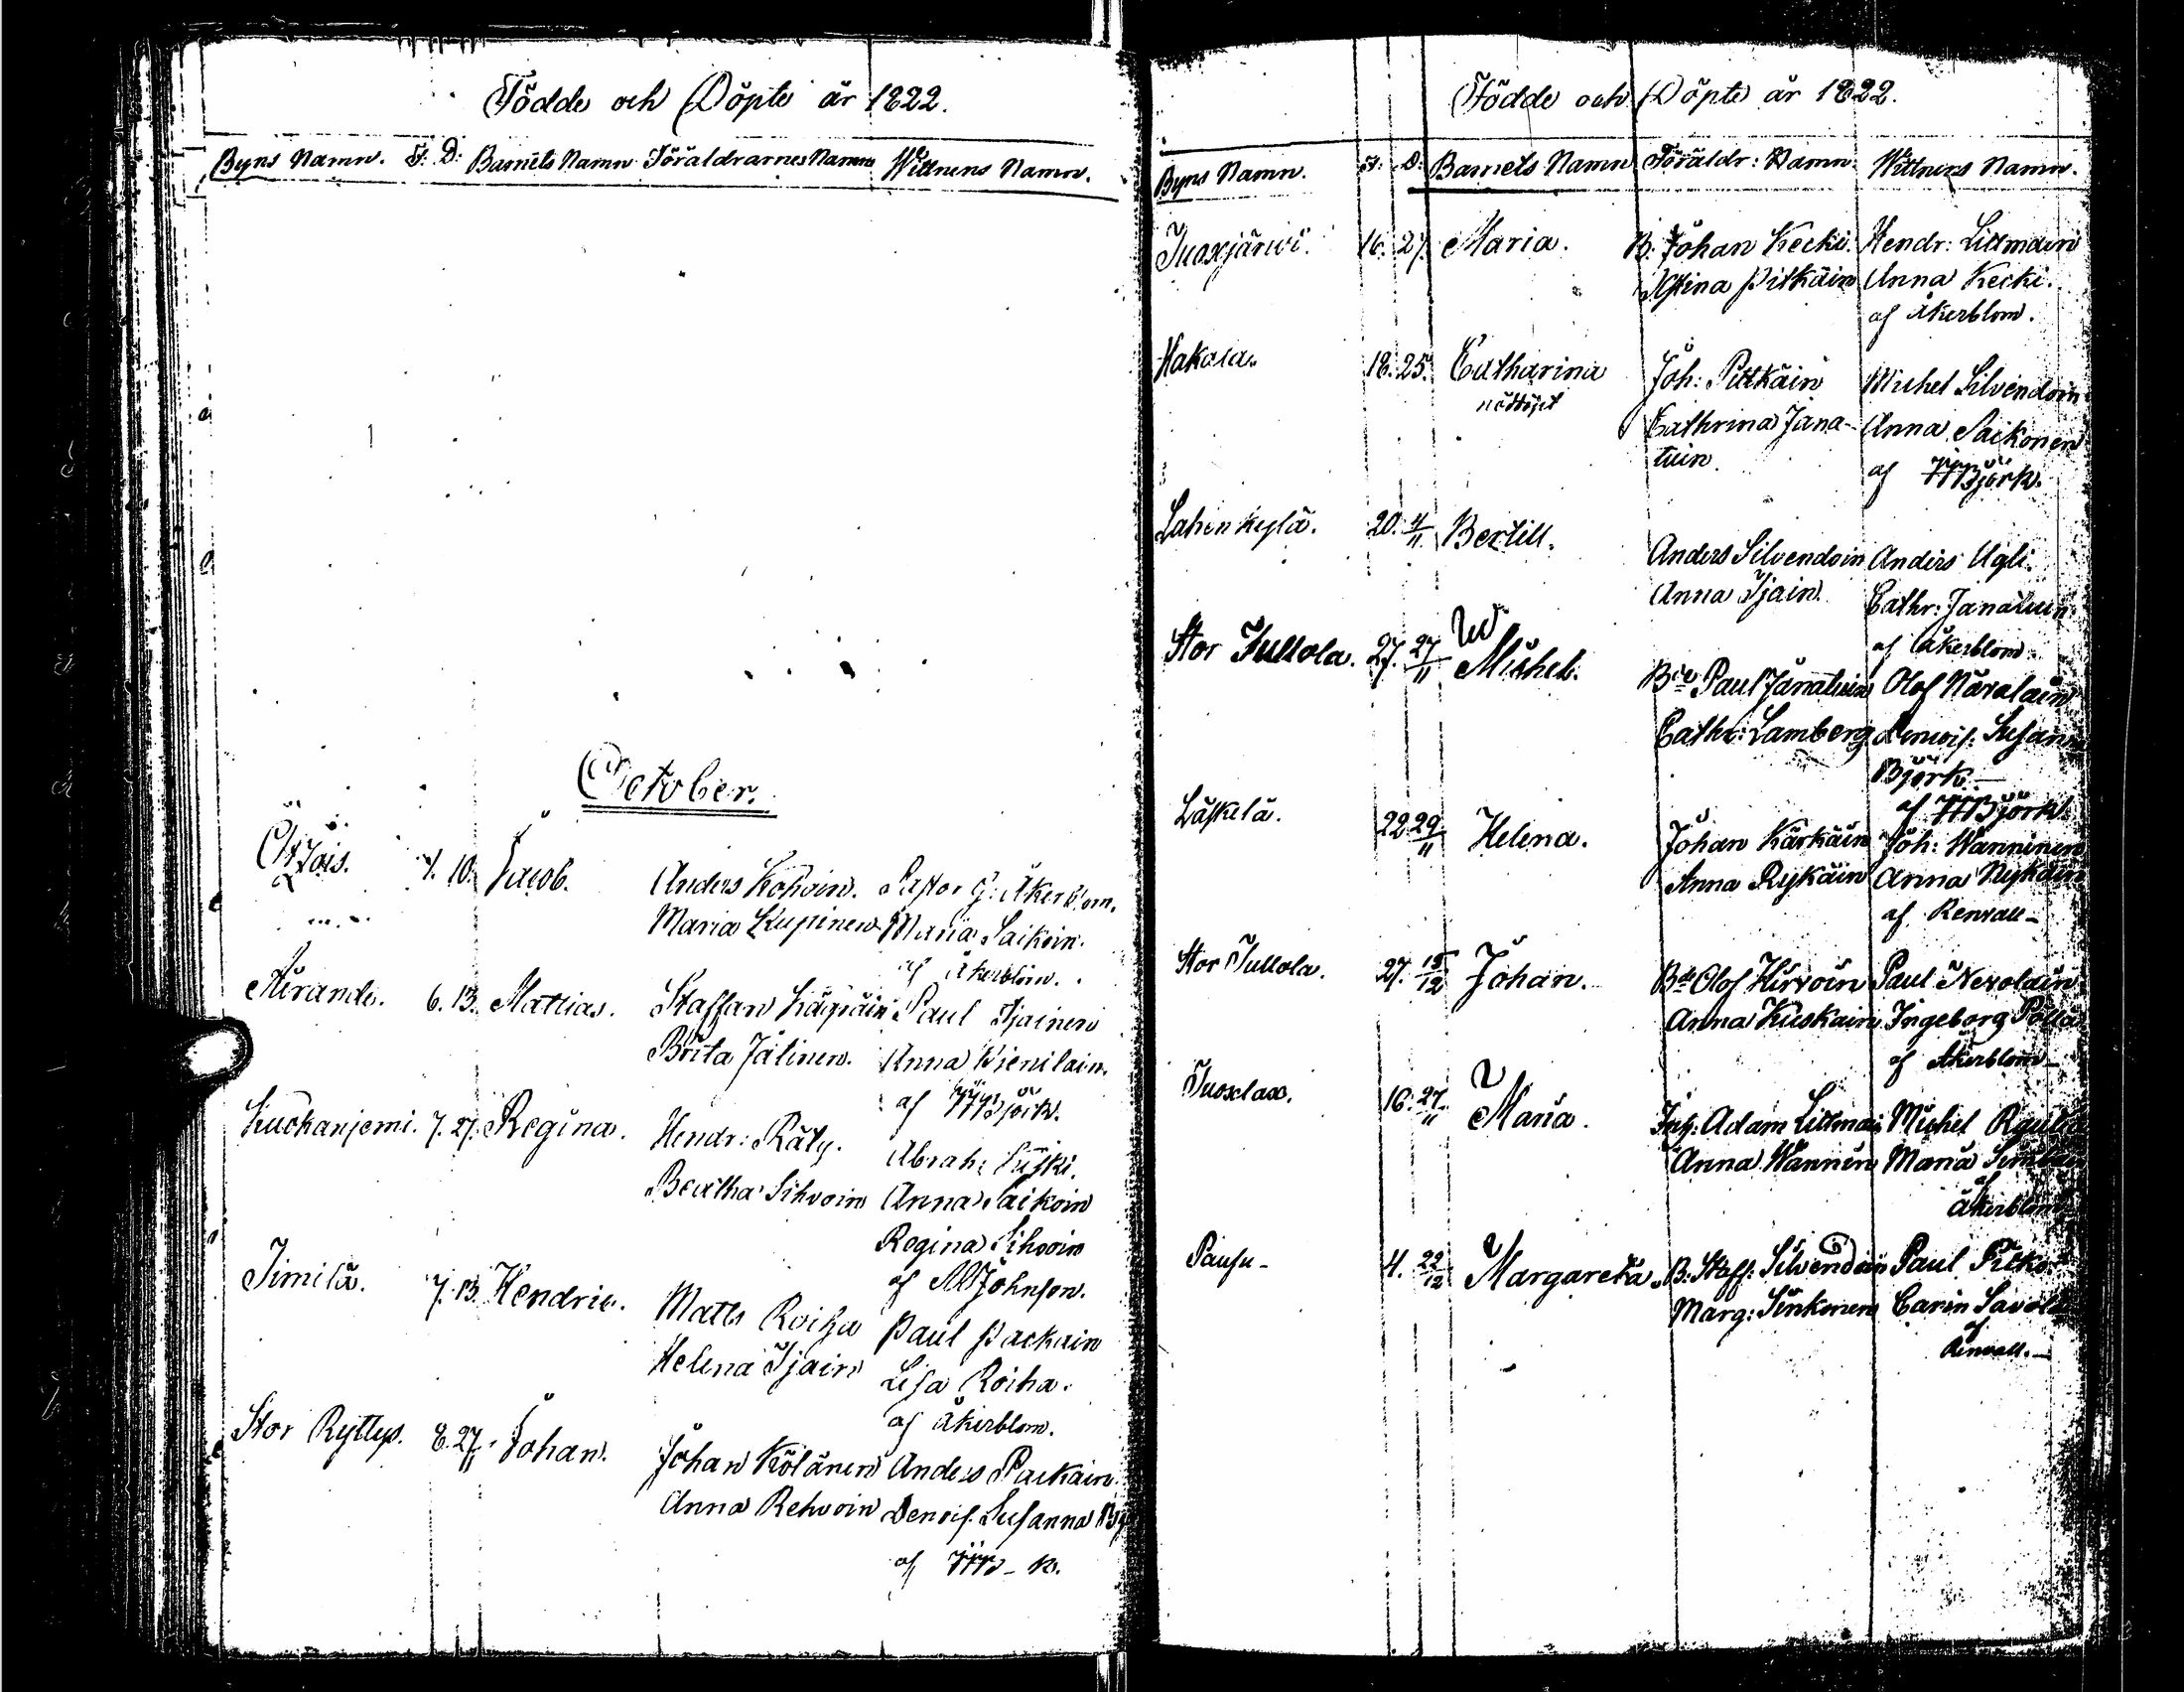 Födde och Döpte år 1822.
Byns Namn. F: D: Barnets Namn Föräldrarnes Namn Wittnens Namn.
October.
4. 10. Jacob. Anders Kohoin. Pastor G: Åkerblom.
Maria Kupinen Maria Saikoin.
af Åkerblom.
Mirando. 6. 13. Mattias. Staffan Käyräin Paul Ijainen
Brita Jälinen. Anna Pienilain.
af JHBjörk.
Kuckanjemi. 7. 27. Regina. Hendr: Räty. Abrah: Suski.
Bertha Sihvoin Anna Saikoin
Regina Sihvoin
af Johnson.
Similä. 7. 13. Hendric. Matts Roiha Paul Packain
Helena Ijain Lisa Roiha.
af Åkerblom.
Stor Ryttys. 8. 27. Johan. Johan Kolänen Anders Packain
Anna Rehvoin Demois. Susanna
af
Födde och Döpte år 1822.
Byns Namn. F: D: Barnets Namn Föräldr: Namn. Wittners Namn.
Tuoxjärwi. 16. 27. Maria. B. Johan Kecki. Hendr: Littmain
Stina Pitkäin Anna Kecki.
af Åkerblom.
Hakala. 18. 25. Catharina Joh: Pittkäin Michel Silvendoin
nöddöpt Cathrina Jana- Anna Saikonen
tuin. af JHBjörk.
Lahenkylä. 20. 4/11 Bertill. Anders Silvendoin Anders Ugli.
Anna Ijain. Cathr: Janatuin
af Åkerblom
Stor Jullola. 27. 27/11 Michel. Paul Janatuin Olof Näralain
Cathr: Lamberg Demois: Susanna
Björk
af JHBjörk.
Läskelä. 22 29/11 Helena. Johan Kärkäin Joh: Wänninen
Anna Rykäin Anna Nykäin
af Renvall
Stor Jullola. 27. 15/12 Johan. Olof Hirvoin Paul Nevolain
Anna Kuskain Ingeborg Pöllä
af Åkerblom
Tuoxlax. 16. 27/11 Maria. Adam Littmain Michel
Anna Wannin Maria
af
Åkerblom
Pausu 4. 22/12 Margareta. B. Staff: Silvendoin Paul
Marg: Sinkonen Carin
af
Renvall.